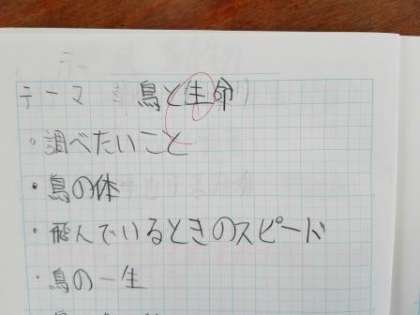 テーマ 鳥と生命
・調べたいこと
・鳥の体
・飛んでいるときのスピード
・鳥の一生